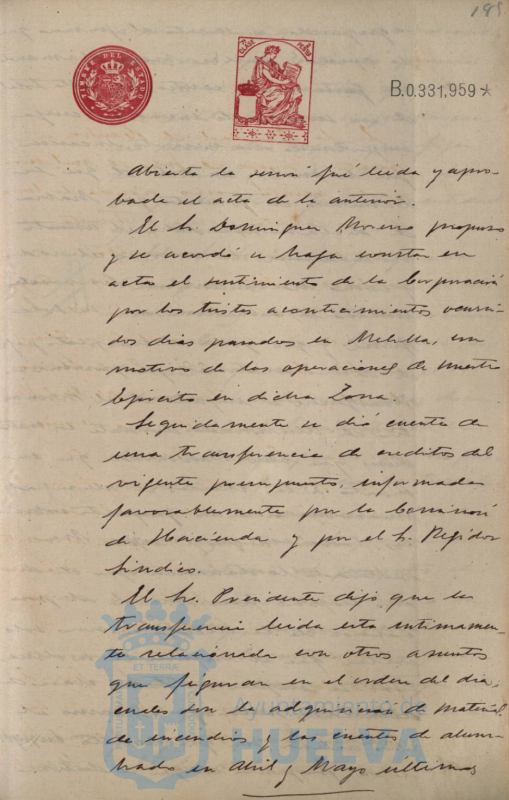 185
TIMBRE DEL ESTADO
B.0.331,959*
Abierta la sesion fué leida y apro-
bada el acta de la anterior.
El Sr. Dominguez Moreno propuso
y se acordó se haga constar en
acta el sentimiento de la Corporación
por los tristes acontecimientos ocurri-
dos dias pasados en Melilla, con
motivo de las operaciones de nuestro
Ejército en dicha Zona.
Seguidamente se dió cuenta de
una transferencia de creditos del
vigente presupuesto, informada
favorablemente por la Comision
de Hacienda y por el Sr. Regidor
Sindico.
El Sr. Presidente dijo que la
transferencia leida esta intimamen-
te relacionada con otros asuntos
que figuran en el orden del dia,
cuales son la adquisicion de material
de incendios y las cuentas de alum-
brado en Abril y Mayo ultimos
ET TERRÆ
Ayuntamiento de
HUELVA